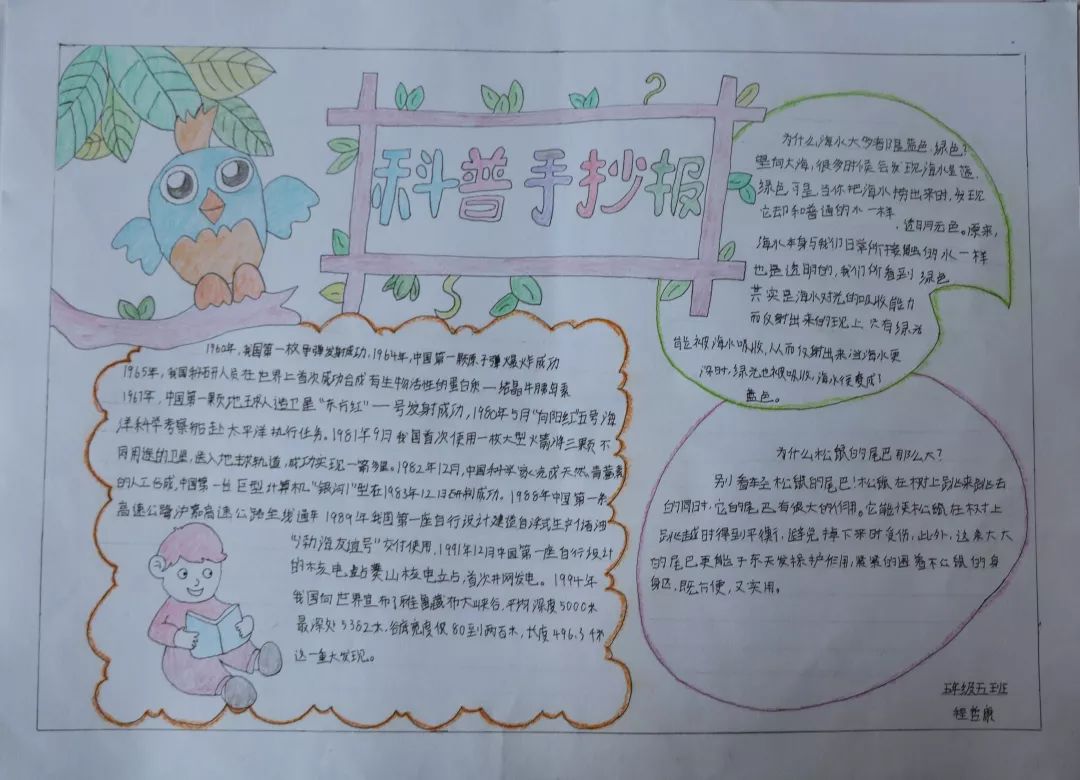 科普手抄报
1960年，我国第一枚导弹发射成功，1964年，中国第一颗原子弹爆炸成功
1965年，我国科研人员在世界上首次成功合成有生物活性的蛋白质——结晶牛胰岛素
1967年，中国第一颗地球人造卫星“东方红”一号发射成功，1980年5月“向阳红”五号海
洋科学考察船赴太平洋执行任务。1981年9月我国首次使用一枚大型火箭将三颗不
同用途的卫星，送入地球轨道，成功实现一箭多星。1982年12月，中国科学家完成天然青蒿素
的人工合成，中国第一台巨型计算机“银河1”型在1983年12月研制成功。1988年中国第一条
高速公路沪嘉高速公路全线通车 1989年我国第一座自行设计建造自浮式生产储油
“渤海友谊号”交付使用，1991年12月中国第一座自行设计
的核电站秦山核电立占，首次并网发电。1994年
我国向世界宣布了雅鲁藏布大峡谷，平均深度5000米
最深处5382米，谷底宽度仅80到两百米，长度496.3千米
这一重大发现。
为什么海水大多都是蓝色、绿色？
望向大海，很多时候会发现海水呈蓝、
绿色 可是当你把海水捞出来时，发现
它却和普通的水一样
，透明无色。原来，
海水本身与我们日常所接触的水一样
也是透明的，我们所看到绿色
其实是海水对光的吸收能力
而反射出来的现上 只有绿光
能被海水吸收，从而反射出来当海水更
深时，绿光也被吸收，海水便变成了
蓝色。
为什么松鼠的尾巴那么大？
别看轻松鼠的尾巴！松鼠在树上跳来跳去
的同时，它的尾巴有很大的作用。它能使松鼠在树上
跳越时得到平衡，避免掉下来时受伤，此外，这条大大
的尾巴更能于冬天发挥保护作用，紧紧的围着松鼠的身
身区，既方便，又实用。
五年级五班
程哲康